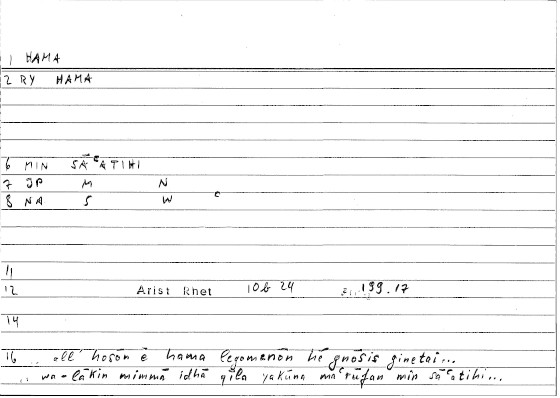 1 HAMA
2 RY HAMA
6 MIN SĀʿATIHI
7 JP M N
8 NA S W ʿ
11
12 Arist Rhet 10b 24 199.17
14
16 .. all' hosōn ē hama legomenōn hē gnōsis ginetai...
.. wa-lākin mimmā idhā qīla yakūna maʿrūfan min sāʿatihi...